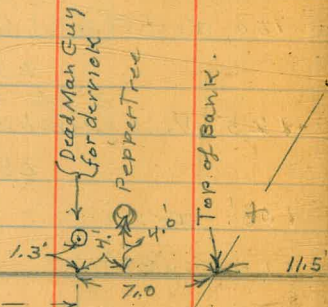 Dead Man Guy
for derrick
Pepper Tree
Top of Bank.
1.3'
4'
4.0'
7.0
11.5